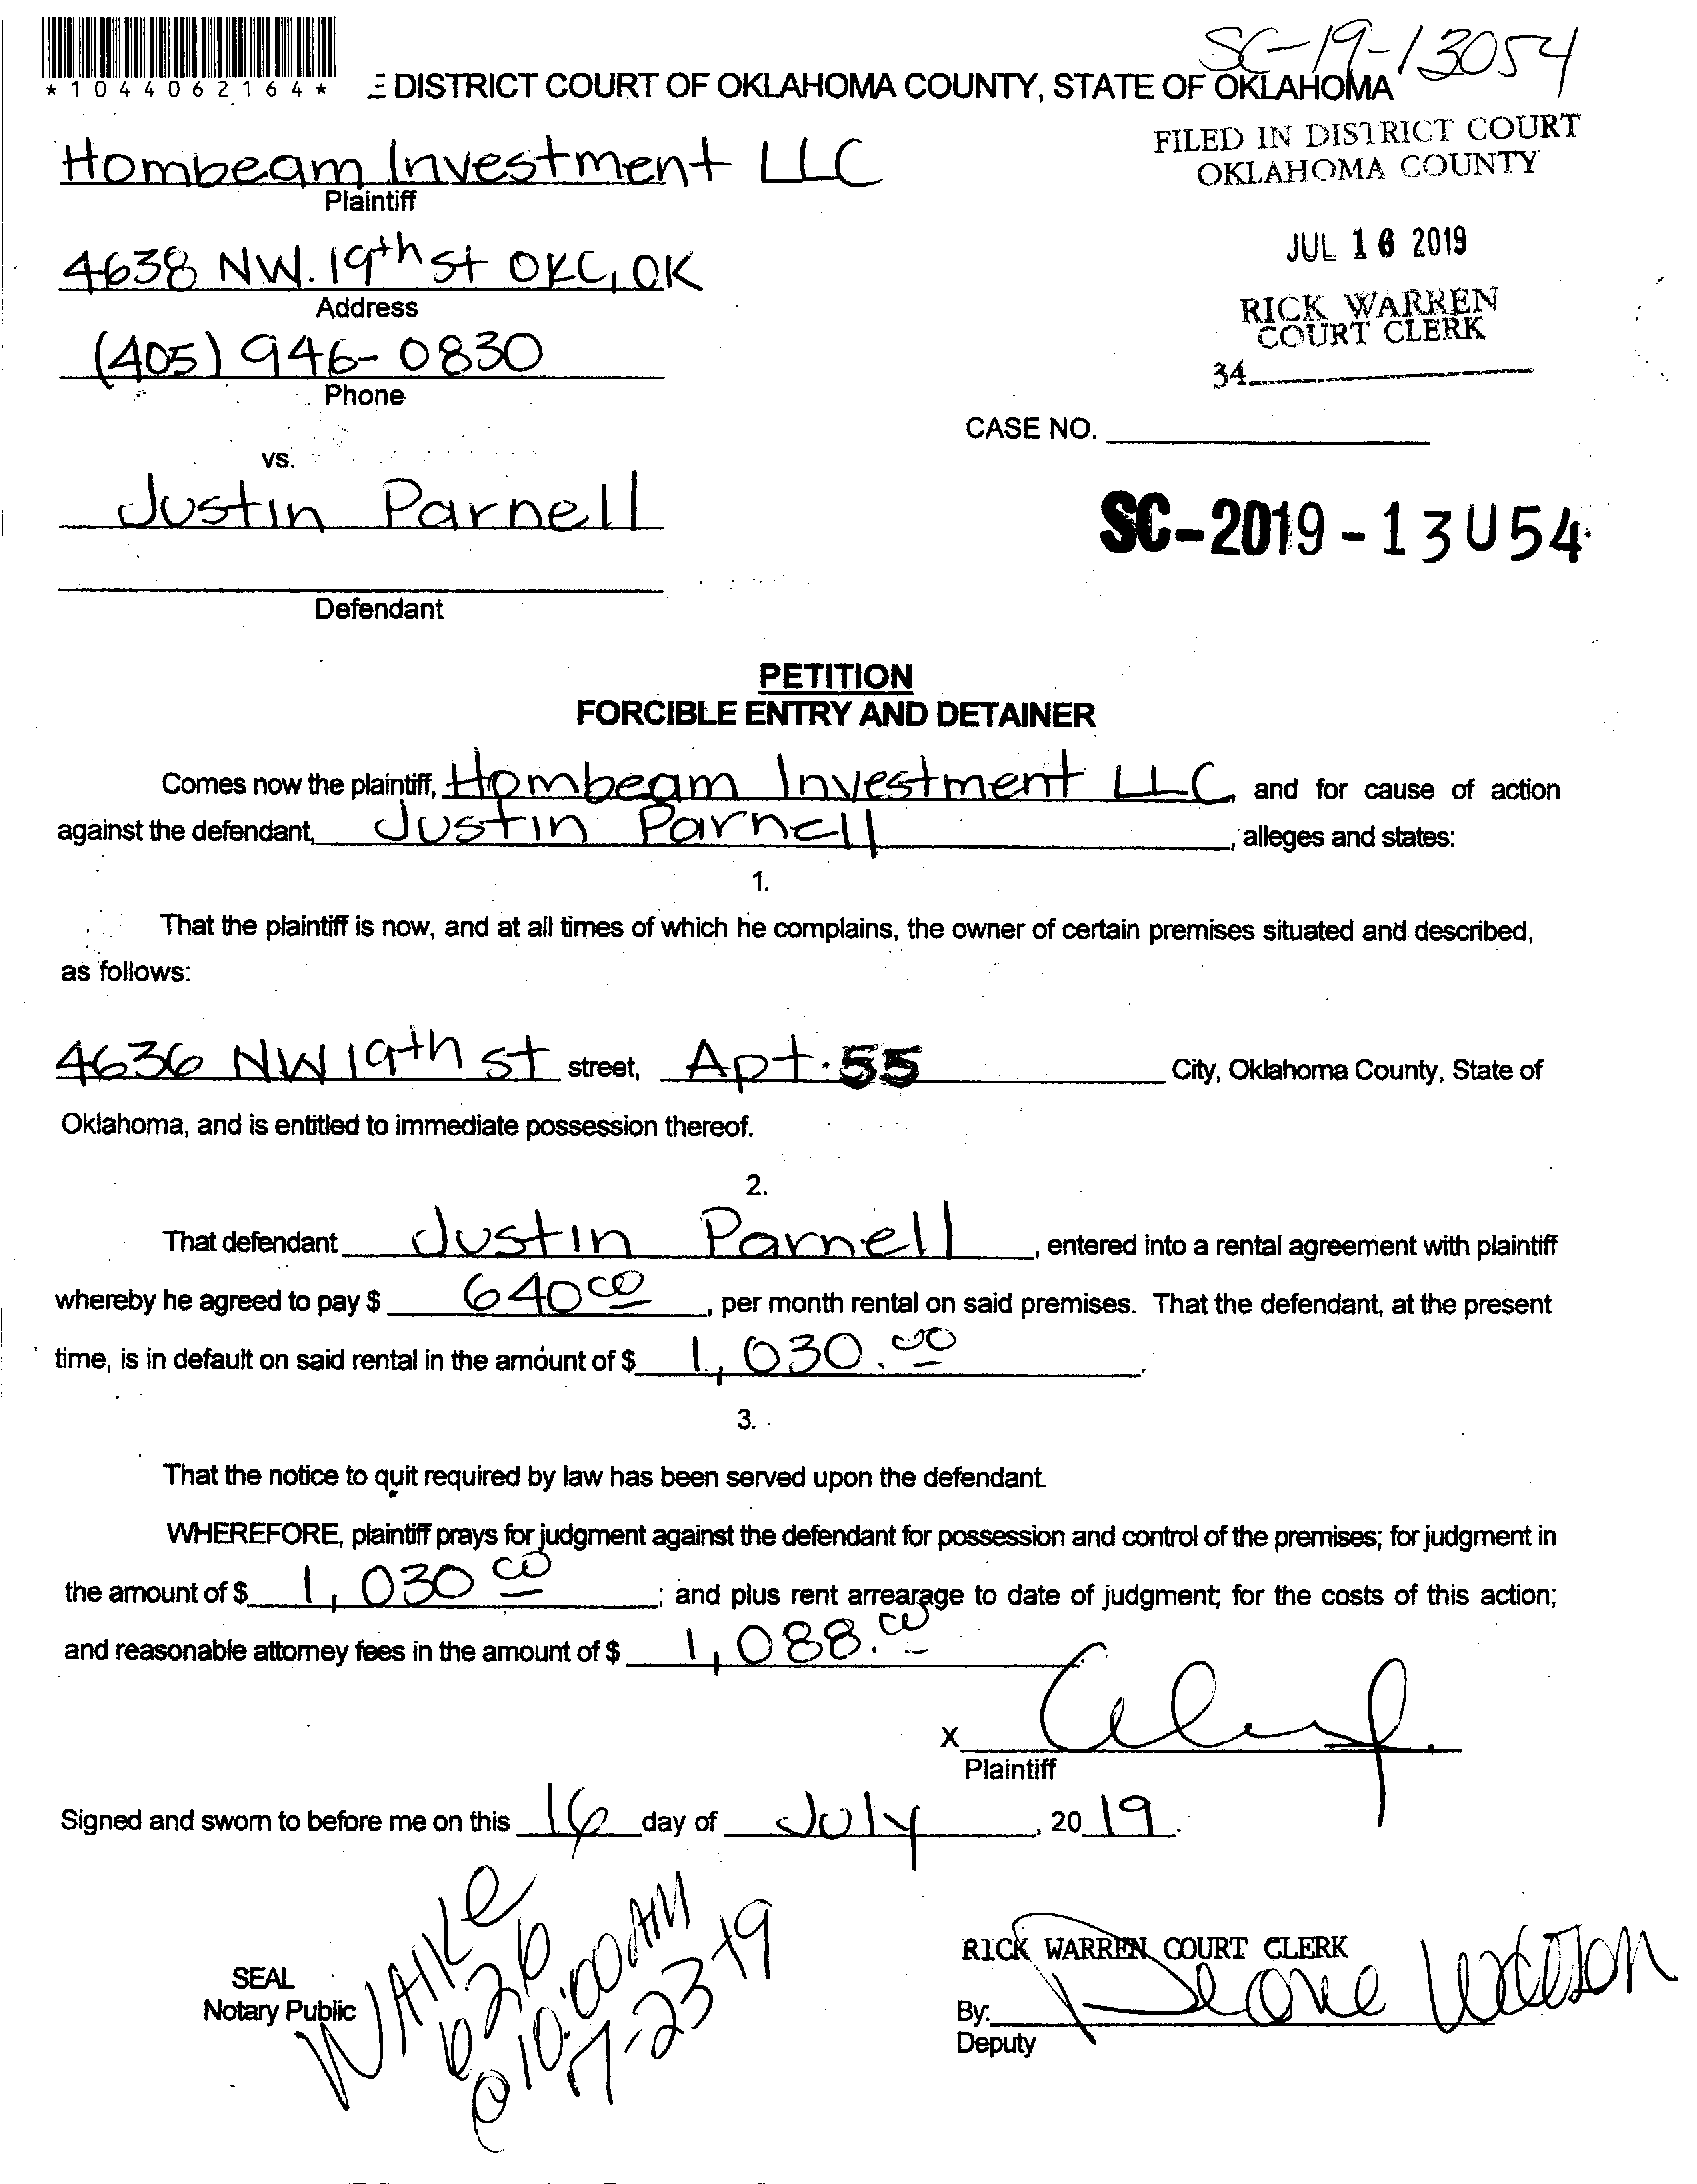 SC-19-13054
*1044062164*
DISTRICT COURT OF OKLAHOMA COUNTY, STATE OF OKLAHOMA
FILED IN DISTRICT COURT
OKLAHOMA COUNTY
Hombeam Investment LLC
Plaintiff
JUL 16 2019
4638 NW. 19th St OKC, OK
Address
RICK WARREN
COURT CLERK
(405) 946-0830
34
Phone
CASE NO.
vs.
Justin Parnell
SC-2019-13U54
Defendant
PETITION
FORCIBLE ENTRY AND DETAINER
Comes now the plaintiff, Hombeam Investment LLC, and for cause of action
against the defendant, Justin Parnell, alleges and states:
1.
That the plaintiff is now, and at all times of which he complains, the owner of certain premises situated and described,
as follows:
4636 NW 19th St street, Apt. 55 City, Oklahoma County, State of
Oklahoma, and is entitled to immediate possession thereof.
2.
That defendant Justin Parnell, entered into a rental agreement with plaintiff
whereby he agreed to pay $ 640 00, per month rental on said premises. That the defendant, at the present
time, is in default on said rental in the amount of $ 1,030.00.
3.
That the notice to quit required by law has been served upon the defendant.
WHEREFORE, plaintiff prays for judgment against the defendant for possession and control of the premises; for judgment in
the amount of $ 1,030 00; and plus rent arrearage to date of judgment; for the costs of this action;
and reasonable attorney fees in the amount of $ 1,088.00
X
Plaintiff
Signed and sworn to before me on this 16 day of July, 20 19.
WAIKE
626
@ 10:00AM
7-23-19
RICK WARREN COURT CLERK
SEAL
Notary Public
By:
Deputy